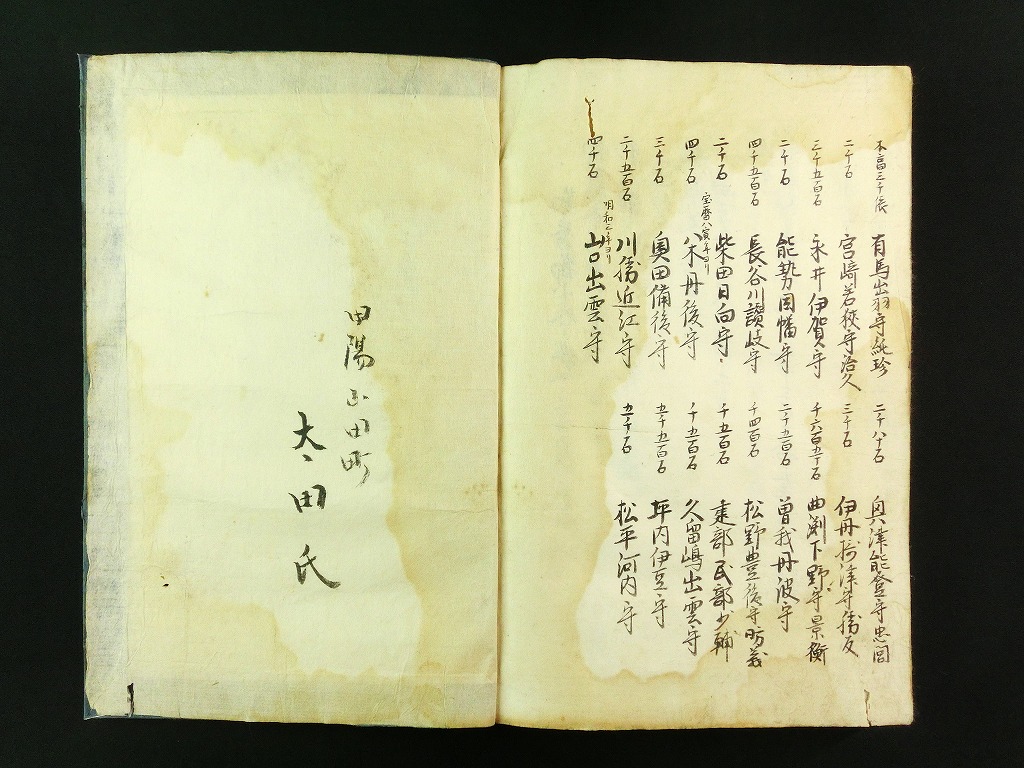 不言三千俵 有馬出羽守純珍
二千石 宮崎若狭守治久
三千五百石 永井伊賀守
二千石 能勢因幡守
四千五百石 長谷川讃岐守
二千石 柴田日向守
宝暦八寅年ヨリ
四千石 八木丹後守
三千石 奥田備後守
二千五百石 川勝近江守
明和三年ヨリ
四千石 山口出雲守
二千八十石 奥津能登守忠閭
三千石 伊丹摂津守勝友
千六百五十石 曲渕下野守景衡
二千五百石 曽我丹波守
千四百石 松野豊後守助義
千五百石 建部民部少輔
千五百石 久留嶋出雲守
五千五百石 坪内伊豆守
五千石 松平河内守
甲陽山田町
太田氏